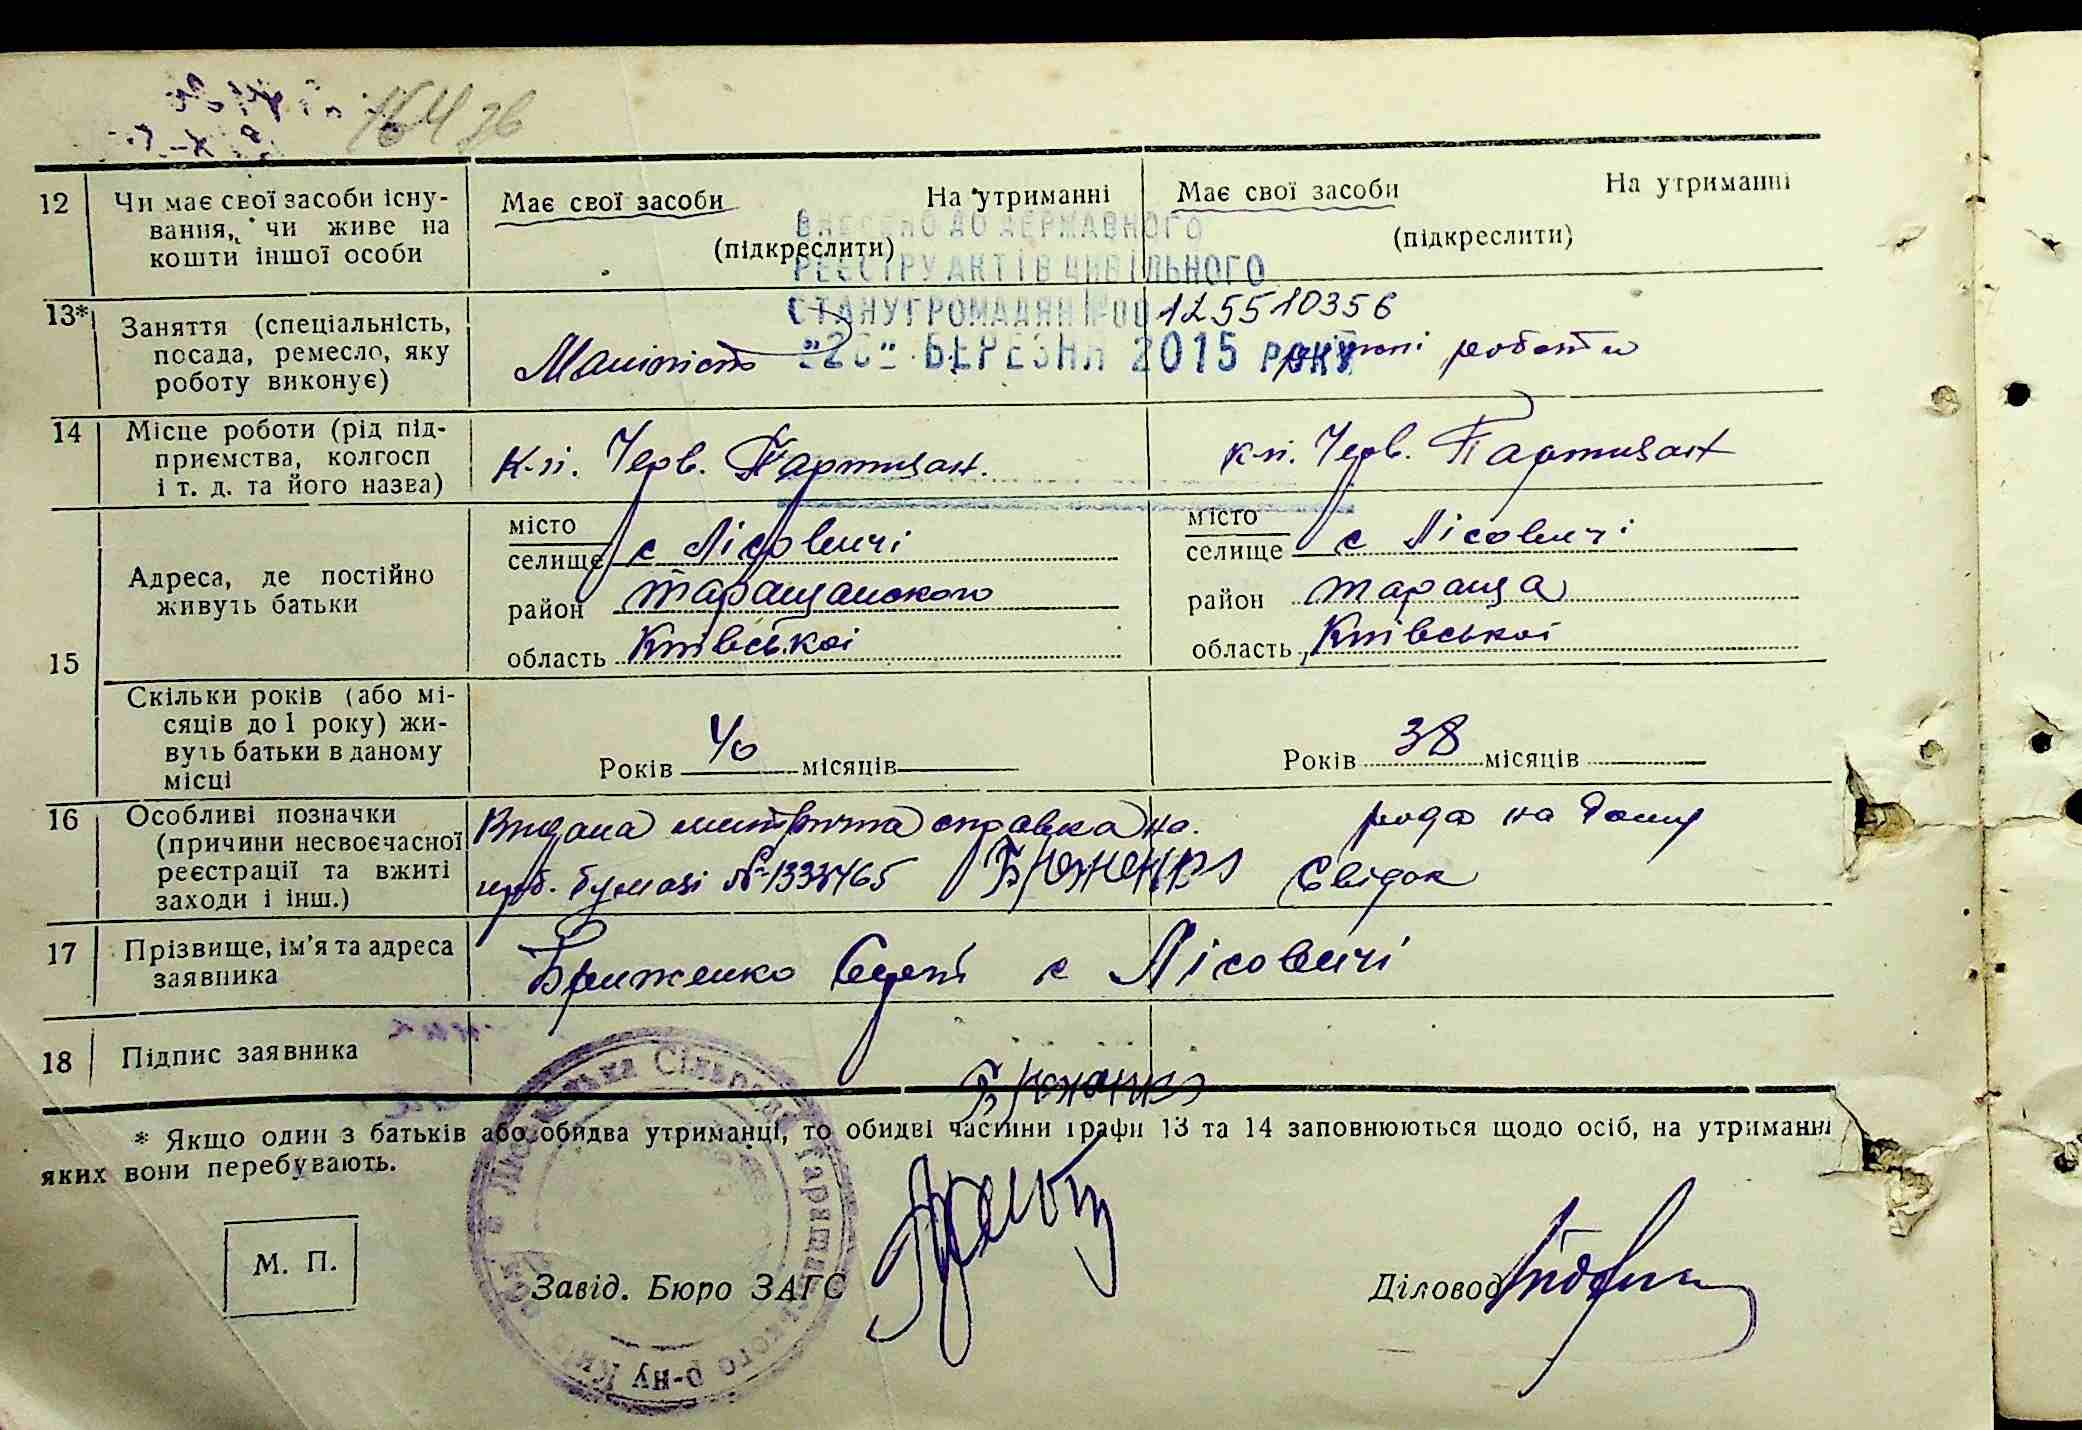 164 зв
12
Чи має свої засоби існу-
вання, чи живе на
кошти іншої особи
Має свої засоби На утриманні
(підкреслити)
Має свої засоби На утриманні
(підкреслити)
ВНЕСЕНО ДО ДЕРЖАВНОГО
РЕЄСТРУ АКТІВ ЦИВІЛЬНОГО
СТАНУ ГРОМАДЯН № 00125510356
"26" БЕРЕЗНЯ 2015 РОКУ
13*
Заняття (спеціальність,
посада, ремесло, яку
роботу виконує)
Машиніст
роботи
14
Місце роботи (рід під-
приємства, колгосп
і т. д. та його назва)
к-п. Черв. Партизан.
к-п. Черв. Партизан
15
Адреса, де постійно
живуть батьки
місто
селище с Лісовичі
район Таращанского
область Київської
місто
селище с Лісовичі
район Тараща
область Київської
Скільки років (або мі-
сяців до 1 року) жи-
вуть батьки в даному
місці
Років 40 місяців
Років 38 місяців
16
Особливі позначки
(причини несвоєчасної
реєстрації та вжиті
заходи і інш.)
Видана метрична справка на
бумазі № 1333465
рода на дому
Свідок
17
Прізвище, ім'я та адреса
заявника
Бриженко с Лісовичі
18
Підпис заявника
* Якщо один з батьків або обидва утриманці, то обидві частини графи 13 та 14 заповнюються щодо осіб, на утриманні
яких вони перебувають.
М. П.
Завід. Бюро ЗАГС
Діловод